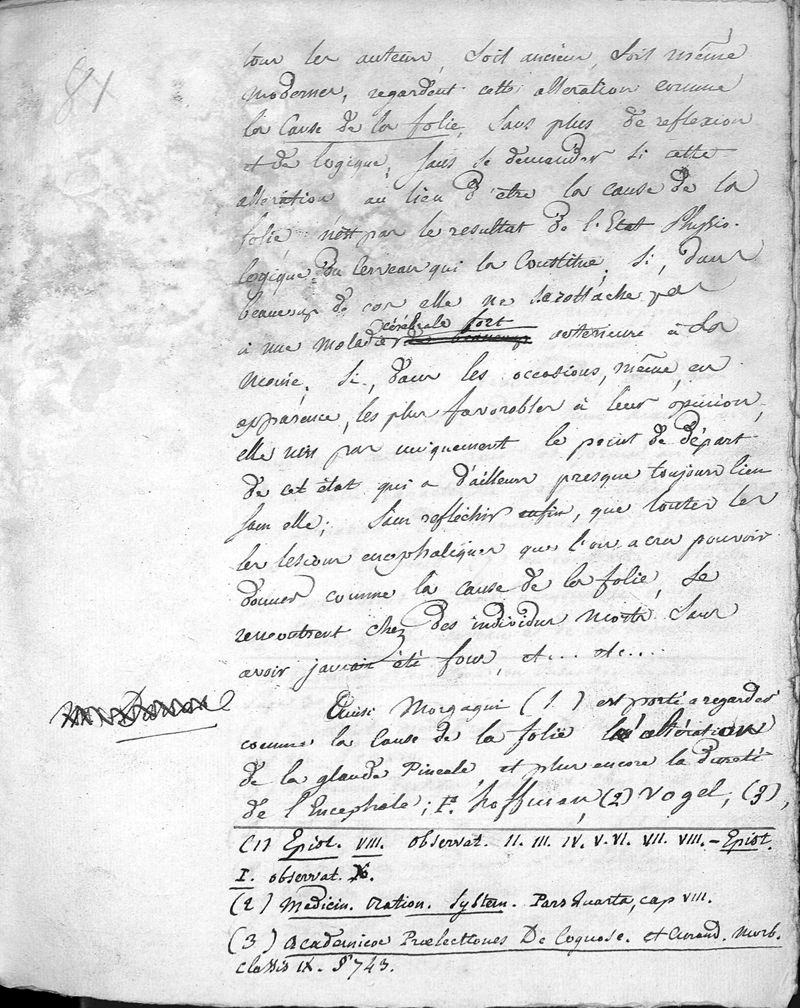 81
tous les auteurs, soit anciens, soit même
modernes, regardent cette alteration comme
la Cause de la folie, sans plus de reflexion
et de logique, sans se demander si cette
alteration au lieu d'être la cause de la
folie, n'est pas le resultat de l'Etat Physio-
logique du Cerveau qui la Constitue, si, dans
beaucoup de cas elle ne se rattache pas
cérébrale fort
à une maladie de beaucoup anterieure à la
manie, si, dans les occasions, même, en
apparence, les plus favorables à leur opinion,
elle n'est pas uniquement le point de départ
de cet état qui a d'ailleurs presque toujours lieu
sans elle; sans reflèchir enfin, que toutes les
les lesions encephaliques que l'on a cru pouvoir
donner comme la cause de la folie, se
rencontrent chez des individus morts sans
avoir jamais été fous, et... etc....
Ainsi Morgagni (1) est porté a regarder
comme la Cause de la folie l'altération
de la glande Pineale, et plus encore la dureté
de l'Encephale; F. hoffman, (2) Vogel, (3),
(1) Epist. VIII. observat. II. III. IV. V. VI. VII. VIII. - Epist.
I. observat. X.
(2) Medicin. ration. System. Pars Quarta, cap VIII.
(3) Academicoe Proelectiones De Cognosc. et Curand. Morb.
Classis IX. §743.